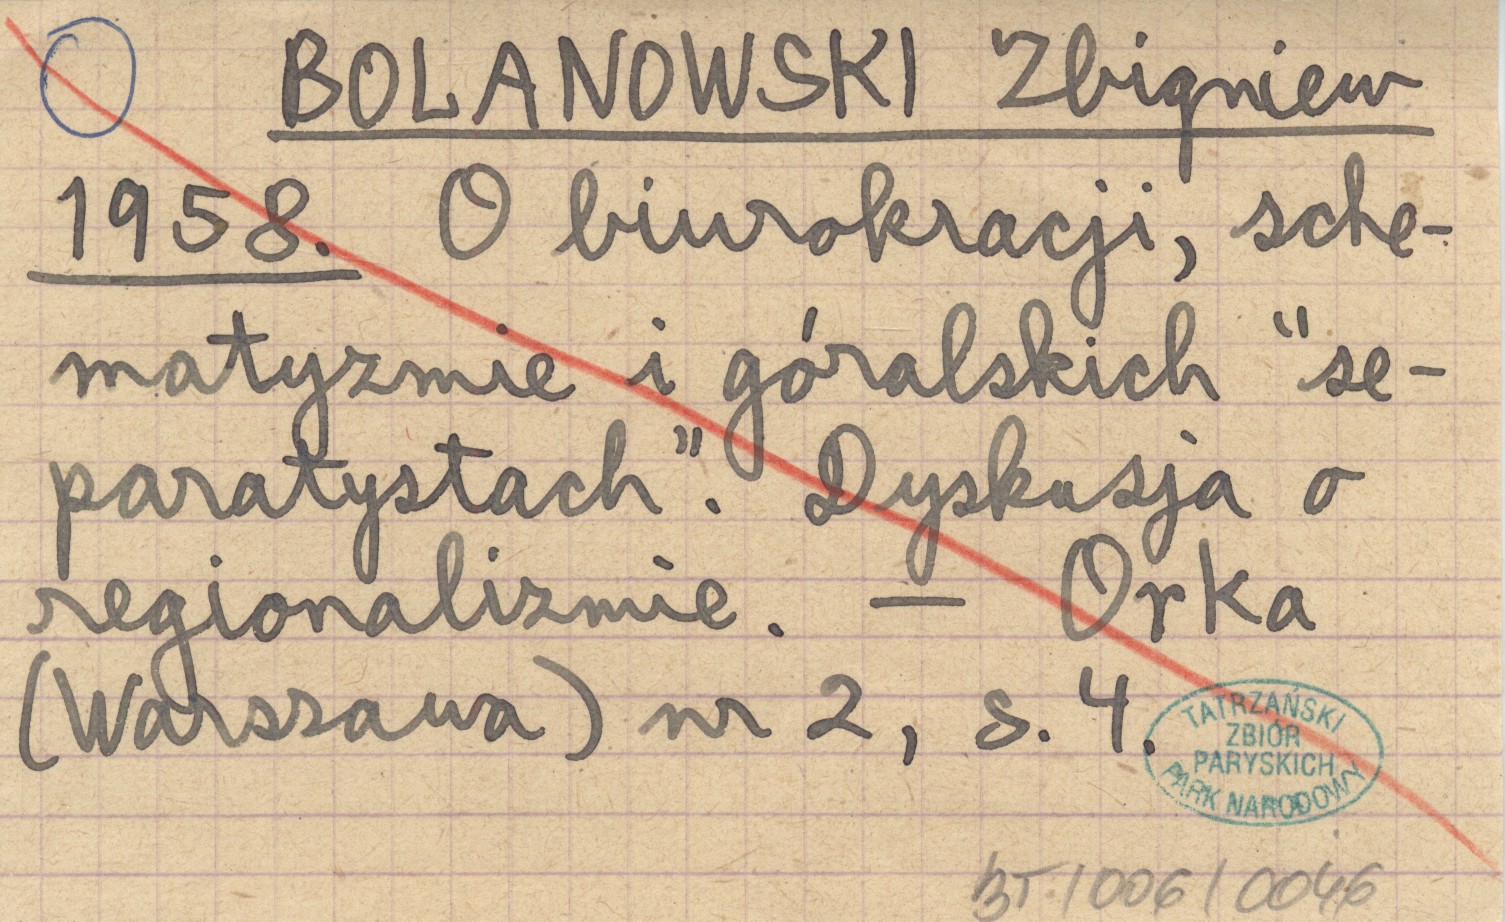 BOLANOWSKI Zbigniew
1958. O biurokracji, sche-
matyzmie i góralskich "se-
paratystach". Dyskusja o
regionalizmie. — Orka
(Warszawa) nr 2, s. 4.
TATRZAŃSKI
ZBIÓR
PARYSKICH
PARK NARODOWY
BT/006/0046